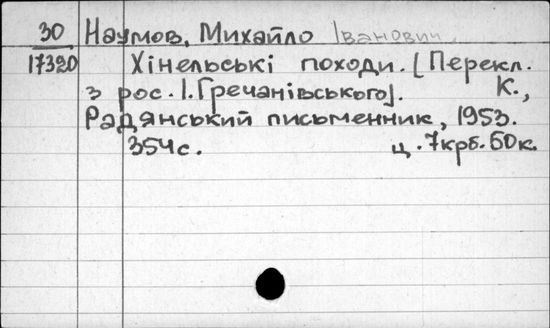 30 Наумов, Михайло Іванович.
17320 Хінельські походи. [Перекл.
з рос. І. Гречанівського]. К.,
Радянський письменник, 1953.
354с. ц. 7крб. 50к.